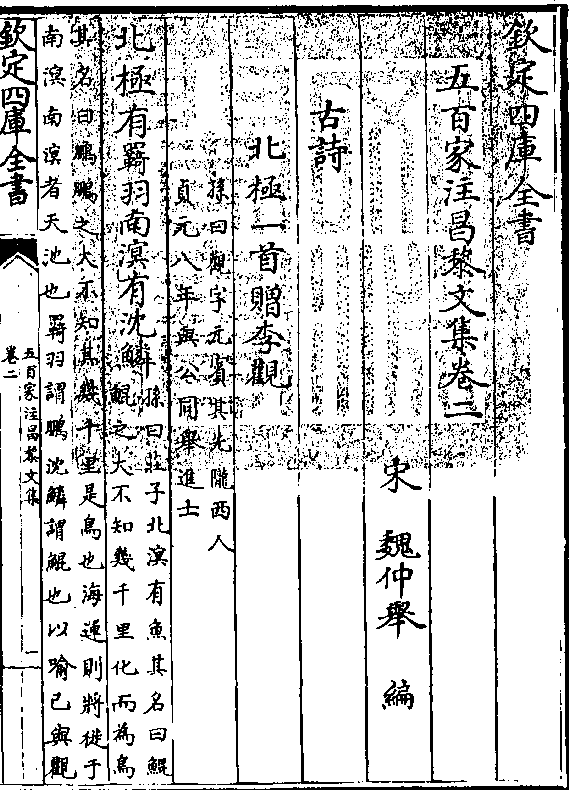 欽定四庫全書
五百家注昌黎文集卷二
宋 魏仲舉 編
古詩
北極一首贈李觀
孫曰觀字元賓其先隴西人
貞元八年與公同舉進士
北極有羇羽南溟有沈鱗
孫曰莊子北溟有魚其名曰鯤
鯤之大不知幾千里化而為鳥
其名曰鵬鵬之大不知其幾千里是鳥也海運則將徙于
南溟南溟者天池也羇羽謂鵬沈鱗謂鯤也以喻己與觀
欽定四庫全書
五百家注昌黎文集
卷二
一